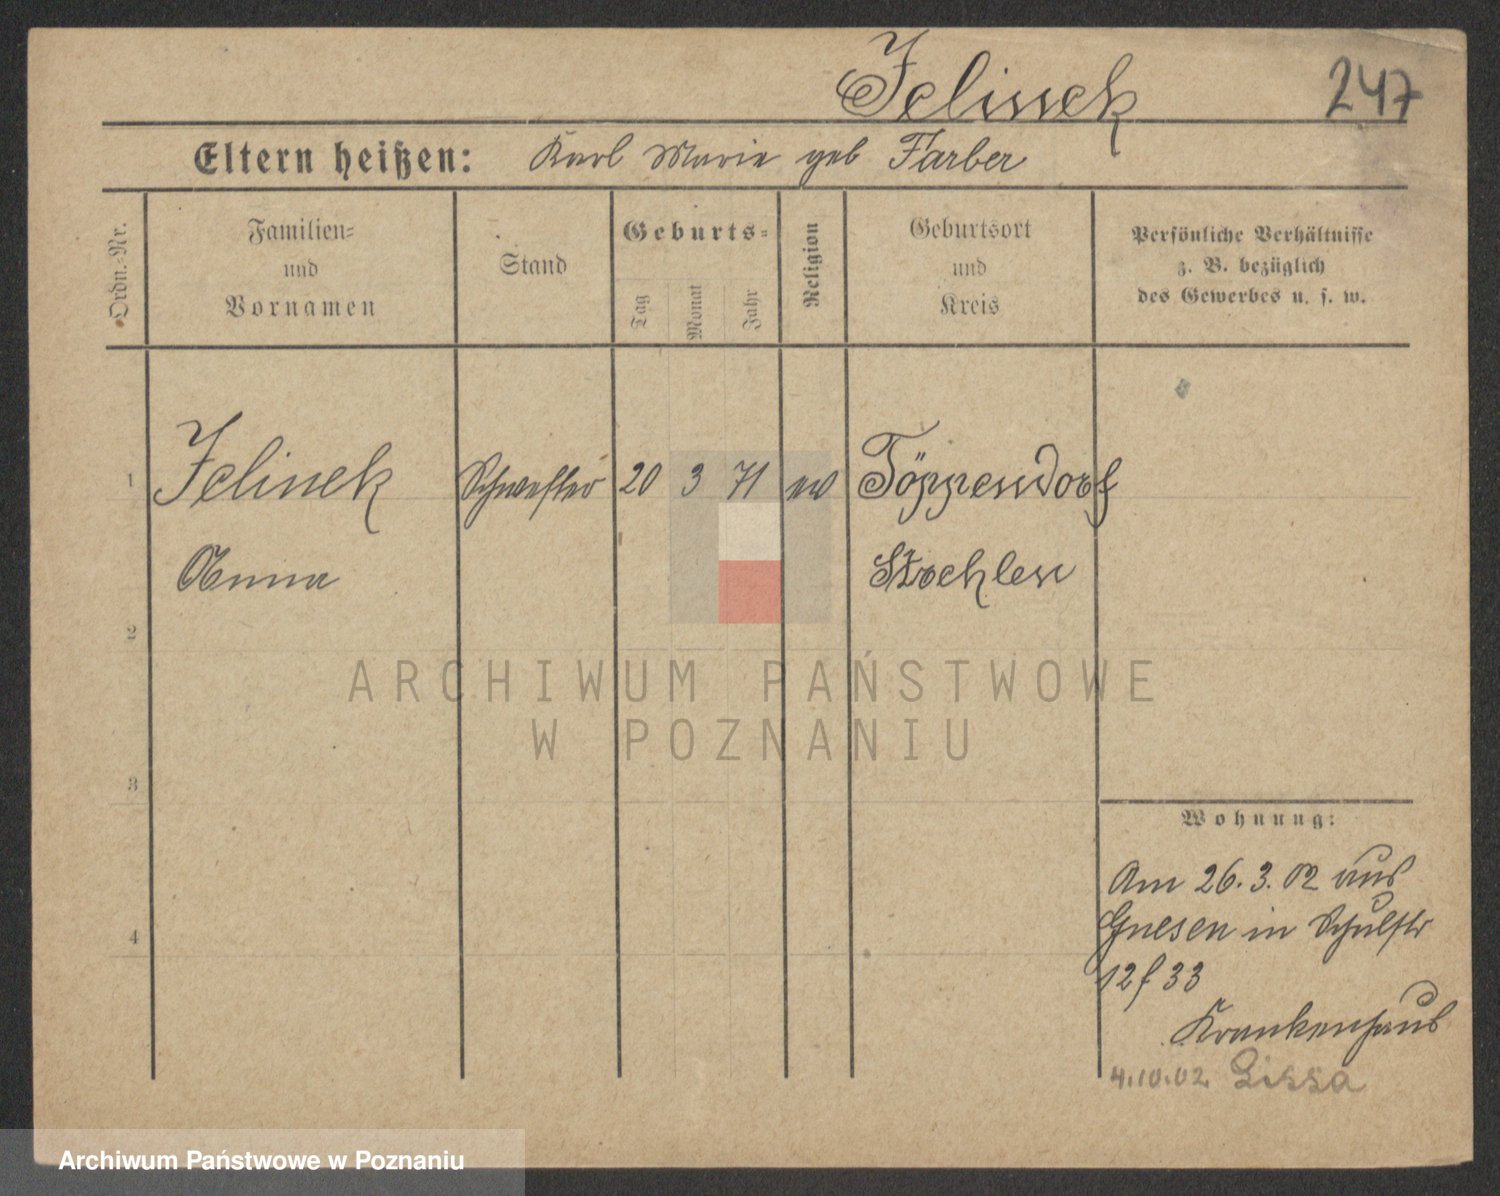 Jelinek 247
Eltern heißen: Karl Marie geb Farber
Ordn.-Nr.
Familien-
und
Vornamen
Stand
Geburts-
Tag
Monat
Jahr
Religion
Geburtsort
und
Kreis
Persönliche Verhältnisse
z. B. bezüglich
des Gewerbes u. s. w.
1 Jelinek Schwester 20 3 71 ev Töppendorf
Anna Strehlen
2
ARCHIWUM PAŃSTWOWE
W POZNANIU
3
Wohnung:
Am 26. 3. 02 aus
4 Gnesen in Schulstr
12 f 33
Krankenhaus
4.10.02 Lissa
Archiwum Państwowe w Poznaniu